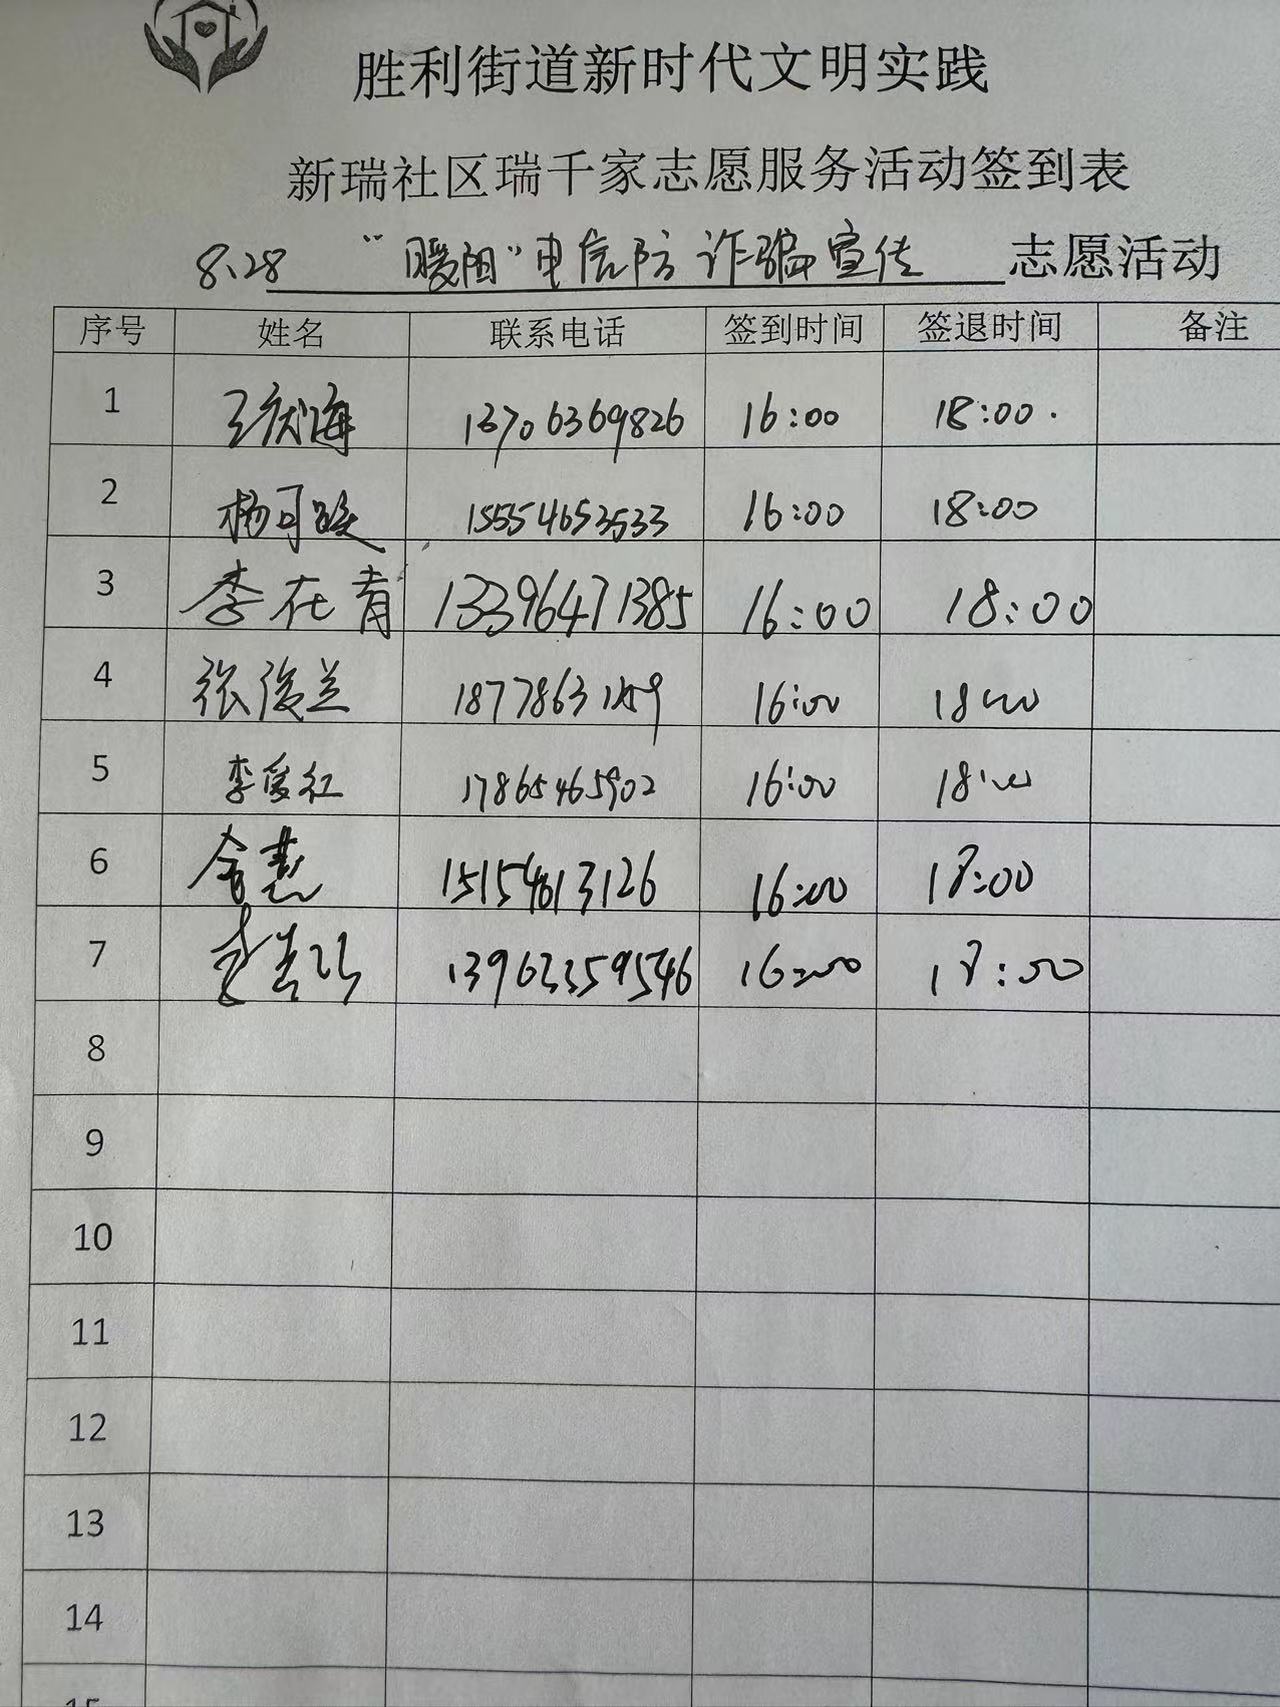 胜利街道新时代文明实践
新瑞社区瑞千家志愿服务活动签到表
8.28 "暖阳"电信防诈骗宣传 志愿活动
序号 姓名 联系电话 签到时间 签退时间 备注
1 王庆海 13706369826 16:00 18:00.
2 杨可 15554653533 16:00 18:00
3 李在青 13396471385 16:00 18:00
4 张俊兰 16:00 18:00
5 李爱红 17865465902 16:00 18:00
6 15154613126 16:00 18:00
7 16:00 18:00
8
9
10
11
12
13
14
15